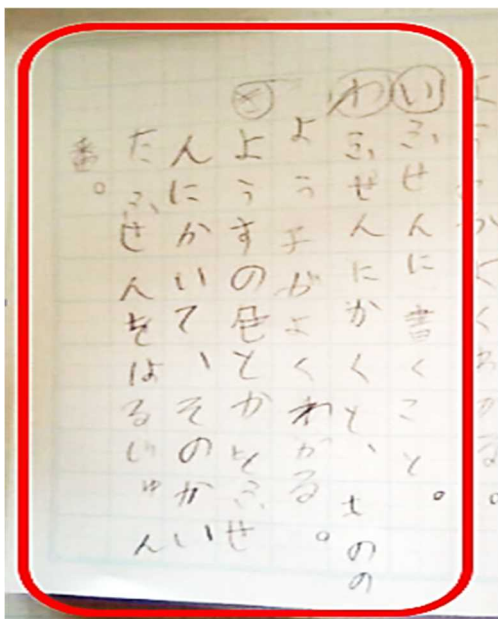 ようすがよくわかる。
いふせんに書くこと。
わふせんにかくと、もののの
よう子がよくわかる。
さようすの色とかをふせ
んにかいて、そのかい
たふせんをはるじゅん
番。